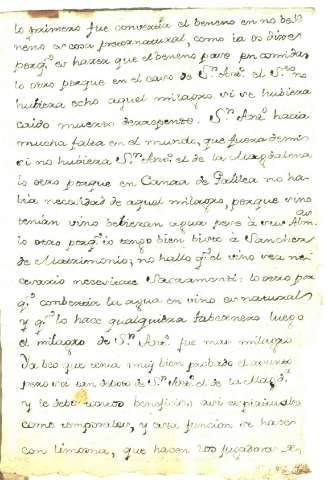 lo primero fue convertir el beneno en no be
neno es cosa preernatural, como ia os dixe
porq.e es hazer que el beneno pase en comida
lo otro porque en el caso de S.n Ant.o el S.r no
hubiera echo aquel milagro si ve hubiera
caido muerto derrepente. S.n Ant.o hacia
mucha falta en el mundo, que fuera de mi
si no hubiera S.n Ant.o el de la Magdalena
lo otro porque en Canaa de Galilea no ha-
bia necesidad de aquel milagro, porque sino
tenian vino bebieran agua pese à sus Alm.as
lo otro porq.e io tengo bien bisto à Sanchez
de Matrimonio; no hallo q.e el vino sea ne
cesario nesesitare Sacramento: lo otro por
q.e conbertir la agua en vino es natural
y q.e lo hace qualquiera tabernero luego
el milagro de S.n Ant.o fue mas milagro
Ya beo que tenia muy bien probado el asunto
pero soi tan deboto de S.n Ant.o el de la Magd.a
y le debo tantos beneficios asi espirituales
como temporales, y esta funcion se hace
con limosna, que hacen los jugadores